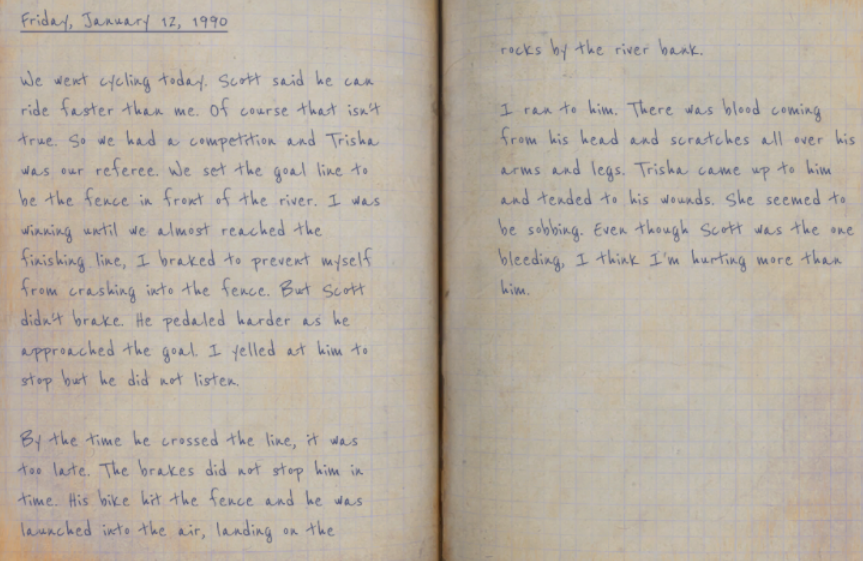 Friday, January 12, 1990
We went cycling today. Scott said he can
ride faster than me. Of course that isn't
true. So we had a competition and Trisha
was our referee. We set the goal line to
be the fence in front of the river. I was
winning until we almost reached the
finishing line, I braked to prevent myself
from crashing into the fence. But Scott
didn't brake. He pedaled harder as he
approached the goal. I yelled at him to
stop but he did not listen.
By the time he crossed the line, it was
too late. The brakes did not stop him in
time. His bike hit the fence and he was
launched into the air, landing on the
rocks by the river bank.
I ran to him. There was blood coming
from his head and scratches all over his
arms and legs. Trisha came up to him
and tended to his wounds. She seemed to
be sobbing. Even though Scott was the one
bleeding, I think I'm hurting more than
him.